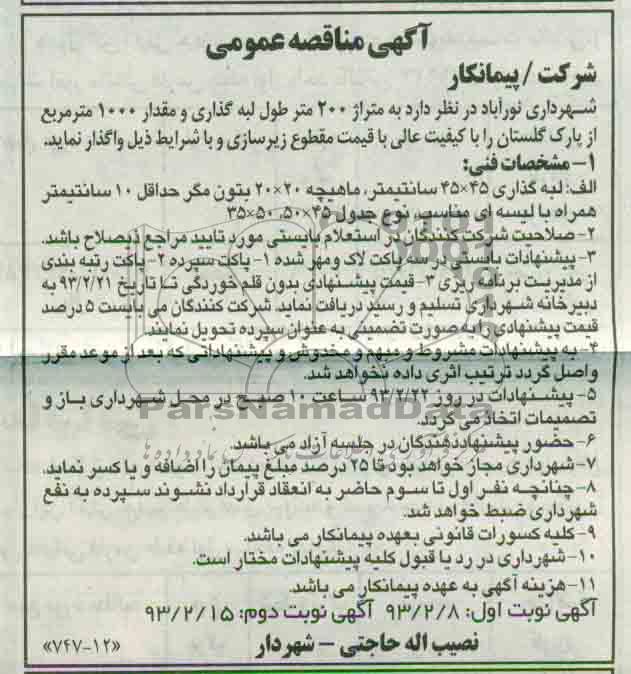 آگهی مناقصه عمومی
شرکت / پیمانکار
شهرداری نورآباد در نظر دارد به متراژ ۲۰۰ متر طول لبه گذاری و مقدار ۱۰۰۰ مترمربع
از پارک گلستان را با کیفیت عالی با قیمت مقطوع زیرسازی و با شرایط ذیل واگذار نماید.
۱- مشخصات فنی:
الف: لبه گذاری ۴۵×۴۵ سانتیمتر، ماهیچه ۲۰×۲۰ بتون مگر حداقل ۱۰ سانتیمتر
همراه با لیسه ای مناسب، نوع جدول ۴۵×۵۰، ۵۰×۳۵
۲- صلاحیت شرکت کنندگان در استعلام بایستی مورد تایید مراجع ذیصلاح باشد.
۳- پیشنهادات بایستی در سه پاکت لاک و مهر شده ۱- پاکت سپرده ۲- پاکت رتبه بندی
از مدیریت برنامه ریزی ۳- قیمت پیشنهادی بدون قلم خوردگی تا تاریخ ۹۳/۲/۲۱ به
دبیرخانه شهرداری تسلیم و رسید دریافت نماید. شرکت کنندگان می بایست ۵ درصد
قیمت پیشنهادی را به صورت تضمینی به عنوان سپرده تحویل نمایند.
۴- به پیشنهادات مشروط و مبهم و مخدوش و پیشنهاداتی که بعد از موعد مقرر
واصل گردد ترتیب اثری داده نخواهد شد.
۵- پیشنهادات در روز ۹۳/۲/۲۲ ساعت ۱۰ صبح در محل شهرداری باز و
تصمیمات اتخاذ می گردد.
ParsNamadData
۶- حضور پیشنهاددهندگان در جلسه آزاد می باشد.
۷- شهرداری مجاز خواهد بود تا ۲۵ درصد مبلغ پیمان را اضافه و یا کسر نماید.
۸- چنانچه نفر اول تا سوم حاضر به انعقاد قرارداد نشوند سپرده به نفع
شهرداری ضبط خواهد شد.
۹- کلیه کسورات قانونی بعهده پیمانکار می باشد.
۱۰- شهرداری در رد یا قبول کلیه پیشنهادات مختار است.
۱۱- هزینه آگهی به عهده پیمانکار می باشد.
آگهی نوبت اول: ۹۳/۲/۸ آگهی نوبت دوم: ۹۳/۲/۱۵
نصیب اله حاجتی - شهردار
«۷۴۷-۱۲»